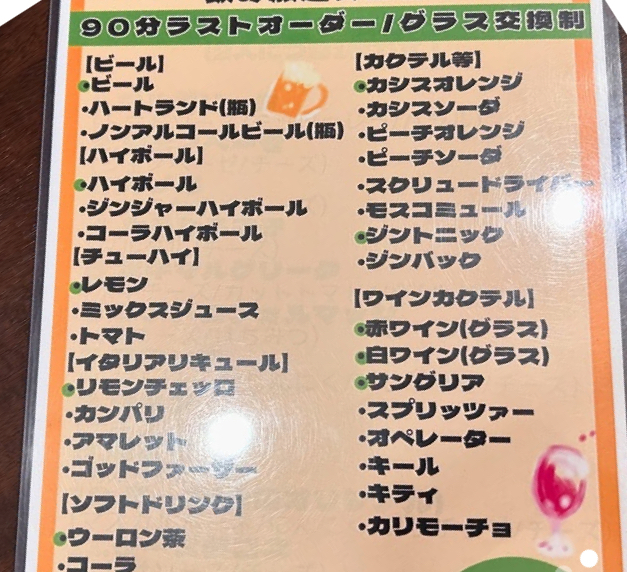 90分ラストオーダー/グラス交換制
【ビール】
・ビール
・ハートランド(瓶)
・ノンアルコールビール(瓶)
【ハイボール】
・ハイボール
・ジンジャーハイボール
・コーラハイボール
【チューハイ】
・レモン
・ミックスジュース
・トマト
【イタリアリキュール】
・リモンチェッロ
・カンパリ
・アマレット
・ゴッドファーザー
【ソフトドリンク】
・ウーロン茶
・コーラ
【カクテル等】
・カシスオレンジ
・カシスソーダ
・ピーチオレンジ
・ピーチソーダ
・スクリュードライバー
・モスコミュール
・ジントニック
・ジンバック
【ワインカクテル】
・赤ワイン(グラス)
・白ワイン(グラス)
・サングリア
・スプリッツァー
・オペレーター
・キール
・キティ
・カリモーチョ